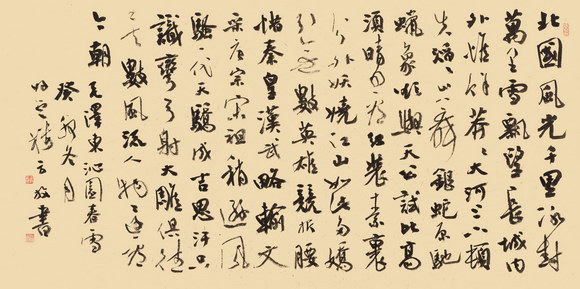 北國風光千里冰封
萬里雪飄望長城內
外惟餘莽莽大河上下頓
失滔滔山舞銀蛇原馳
蠟象欲與天公試比高
須晴日看紅裝素裹
分外妖嬈江山如此多嬌
引無數英雄競折腰
惜秦皇漢武略輸文
采唐宗宋祖稍遜風
騷一代天驕成吉思汗只
識彎弓射大雕俱往
矣數風流人物還看
今朝 毛澤東沁園春雪
癸卯冬月
書